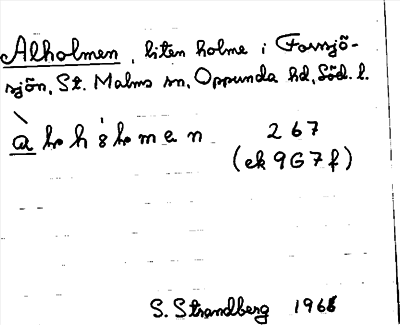 Alholmen, liten holme i Forssjö-
sjön, St. Malms sn, Oppunda hd, Söd. l.
267
(ek 9G7f)
S. Strandberg 1966